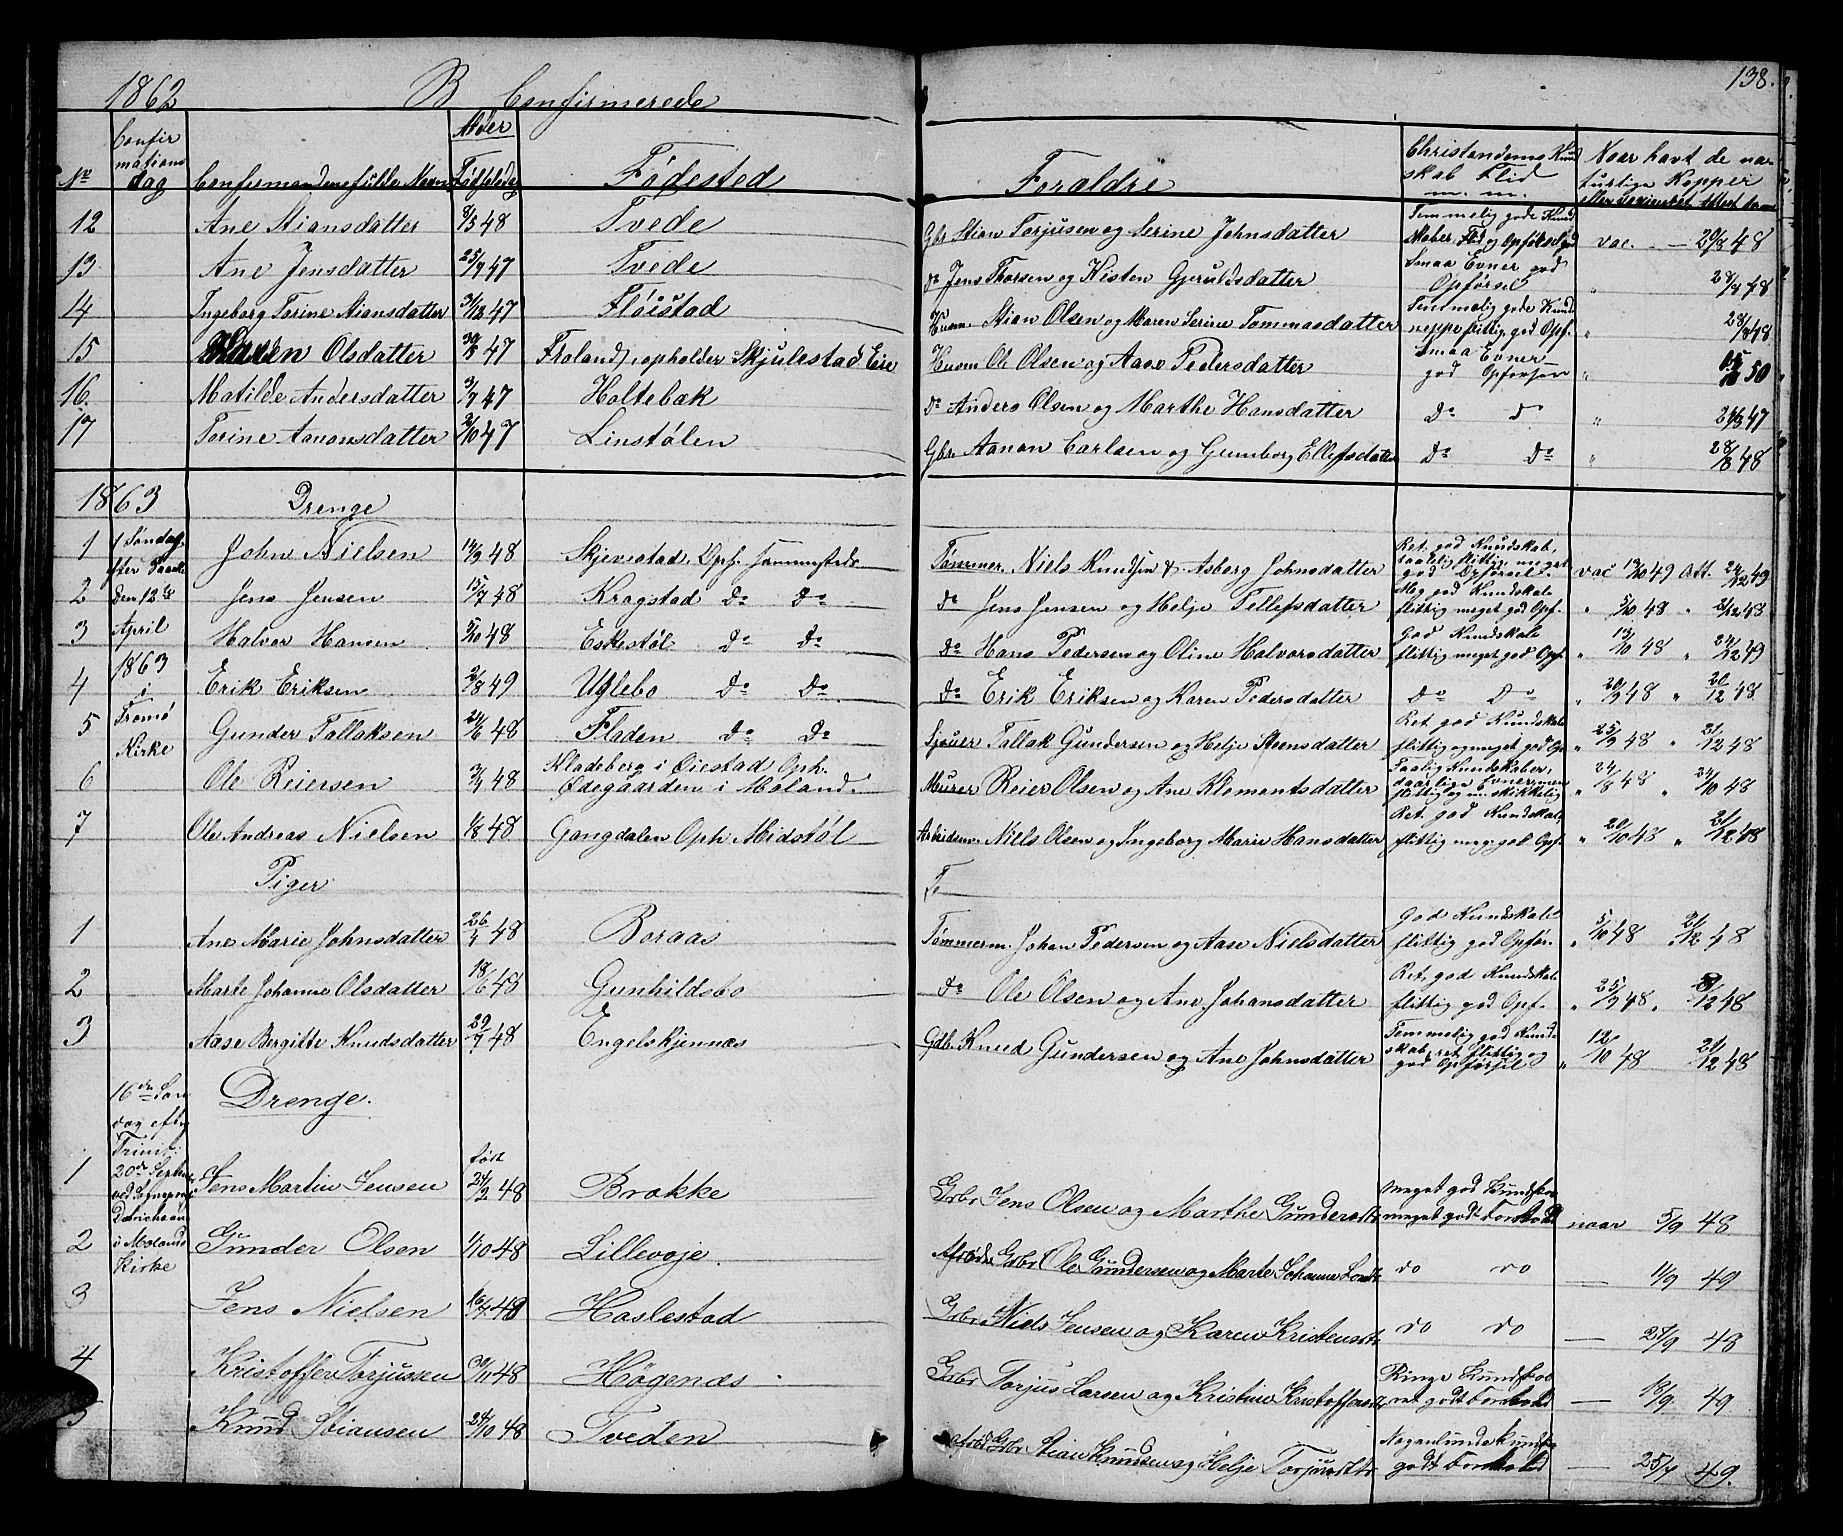 1862 B Confirmerede 138.
No Confirmations dag Confirmandenes fulde Navn Alder Fødselsdag Fødested Forældre Christendoms Kundskab Flid m. m. Naar havt de naturlige Kopper eller vaccineret
12 Ane Stiansdatter 8/5 48 Tvede Gbr Stian Torjusen og Serine Johnsdatter Temmelig gode Kundskaber Flid og Opførsel god vac. — 20/8 48
13 Ane Jensdatter 25/9 47 Tvede do Jens Thorsen og Kisten Gjeruldsdatter Smaa Evner god Opførsel " 28/8 48
14 Ingeborg Torine Stiansdatter 31/12 47 Fløistad Husm Stian Olsen og Maren Serine Tommasdatter Temmelig gode Kund neppe flittig, god Opf. " 28/8 48
15 Karen Olsdatter 30/8 47 Froland, opholder Skjulestad Eie Husm Ole Olsen og Aase Pedersdatter Smaa Evner god Opførsen " 50
16. Matilde Andersdatter 3/7 47 Holtebak do Anders Olsen og Marthe Hansdatter do do " 47
17 Torine Aanonsdatter 2/10 47 Linstølen Gbr Aanon Carlsen og Gunborg Ellefsdatter do do " 28/8 48
1863 Drenge
1 1 Søndag efter Paaske John Nielsen 14/9 48 Skjevestad Oph. sammesteds Tømmer. Niels Knudsen & Asborg Johnsdatter Ret god Kundskab, flittig meget god Opførsel. vac 49 Att. 49
2 den 12te Jens Jensen 15/7 48 Kragstad do do do Jens Jensen og Helje Tellefsdatter Meg god Kundskab flittig meget god Opf. " 5/10 48 " 21/12 48
3 April Halvor Hansen 5/10 48 Eskestøl do do do Hans Pedersen og Oline Halvorsdatter God Kundskab flittig meget god Opf " 13/10 48 " 49
4 1863 i Erik Eriksen 2/8 49 Uglebo do do do Erik Eriksen og Karen Pedersdatter do do " 20/9 48 " 20/12 48
5 Tromø Kirke Gunder Tallaksen 24/6 48 Fladen do do Sjouer Tallak Gundersen og Helje Steensdatter Ret god Kundskab flittig og meget god Op " 25/9 48 " 21/12 48
6 Ole Reiersen 48 Kladeberg i Øiestad Oph. Ødegaarden i Moland. Murer Reier Olsen og Ane Klementsdatter Taalig Kundskaber, daarlige Evner, men flittig og m. skikkelig " 24/8 48 " 24/10 48
7 Ole Andreas Nielsen 1/8 48 Gongdalen Oph. Midstøl Arbeidsm. Niels Olsen og Ingeborg Marie Hansdatter Ret god Kundskab, flittig meg. god Opf. " 20/10 48 " 21/12 48
Piger
1 Ane Marie Johnsdatter 26/4 48 Boraas Tømmerm. Johan Pedersen og Aase Nielsdatter God Kundskab flittig god Opfør. " 5/10 48 " 21/12 48
2 Marte Johanne Olsdatter 18/6 48 Gunhildsbo do Ole Olsen og Ane Johansdatter Ret god Kundskab flittig god Opf. " 25/9 48 " 12 48
3 Aase Bergitte Knudsdatter 29/7 48 Engelskjønnæs Gdb. Knud Gundersen og Ane Johnsdatter Temmelig god Kundskab, ret flittig og god Opførsel " 12/10 48 21/12 48
16de Søndag efter Drenge.
Trinit:
1 20de Septbr Jens Martin Jensen født 24/2 48 Brække Grbr Jens Olsen og Marthe Gundersdtr Meget god Kundskab meget godt Forhold naar 5/9 48
2 i Molands Kirke Gunder Olsen 1/10 48 Lillevoje Afdøde Grbr Ole Gundersen og Marte Johanne do do — 11/9 49
3 Jens Nielsen 16/4 48 Haslestad Grbr Niels Jensen og Karen Kristensdtr do do — 27/9 48
4 Kristoffer Torjussen 30/11 48 Høgenæs Grbr Torjus Larsen og Kristine Kristoffersdtr Ringe Kundskab ret godt Forhold — 18/9. 49
5 Knud Stiansen 24/10 48 Tveden Afdøde Grbr Stian Knudsen og Helje Torjusdtr Nogenlunde Kundsk godt Forhold — 25/7 49.